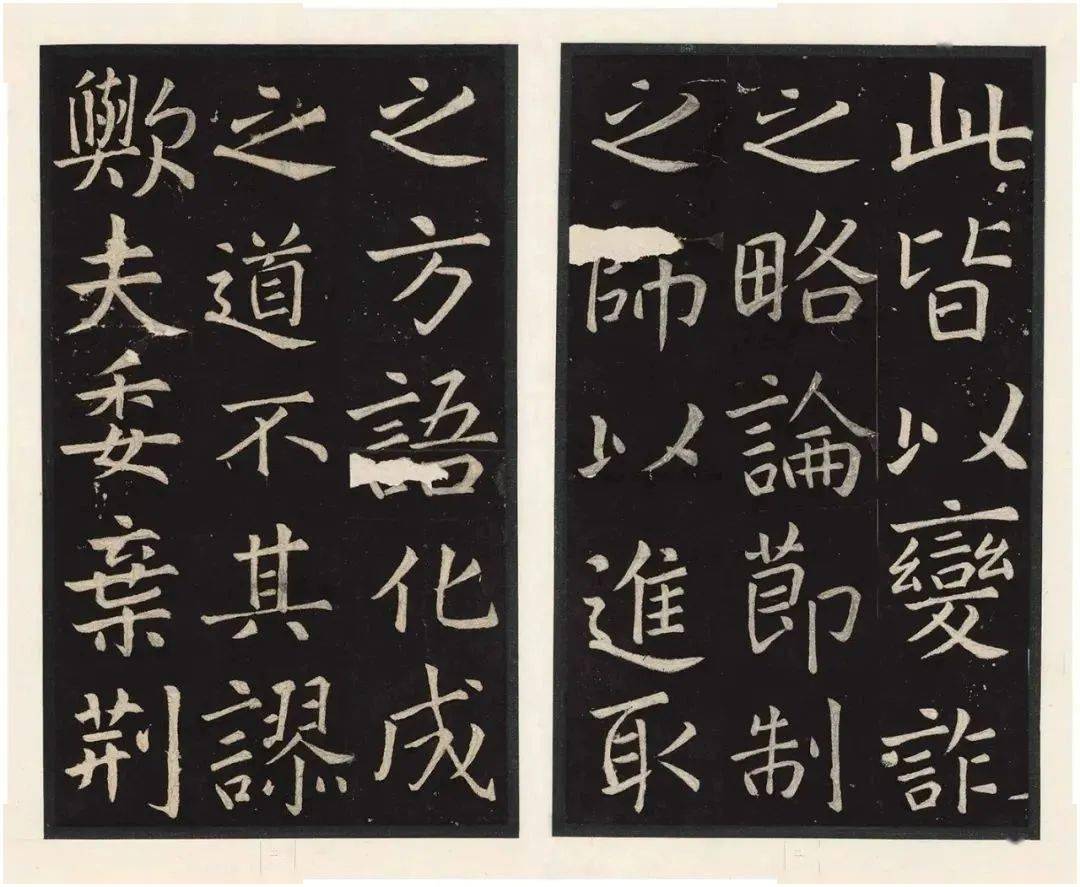 此皆以變詐
之略論節制
之師以進取
之方語化成
之道不其謬
歟夫委棄荆